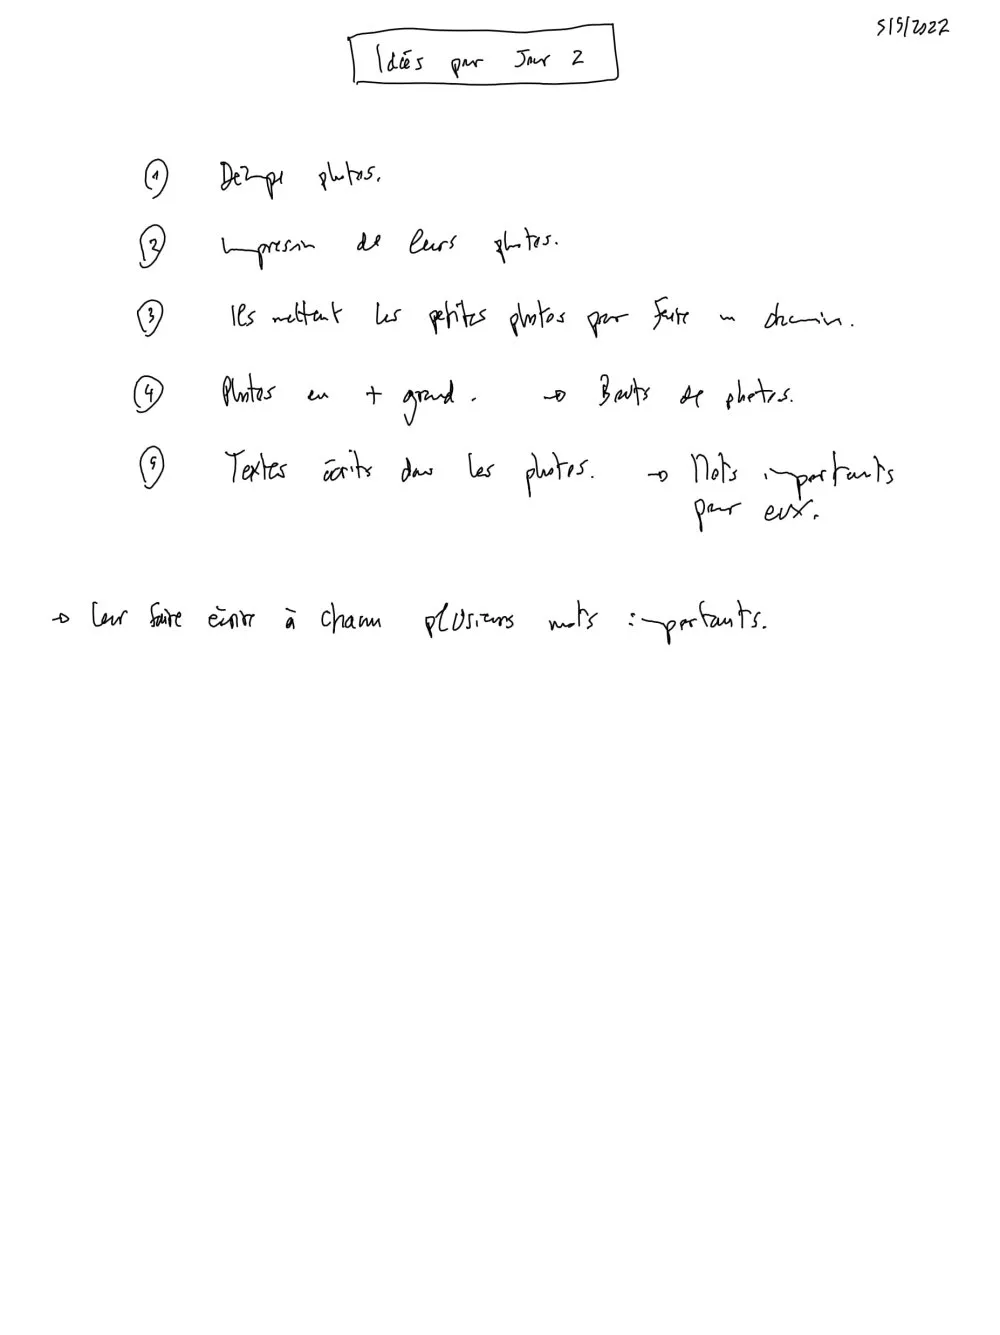 5/5/2022
Idées pour Jour 2
1 photos.
2 Impression de leurs photos.
3 Ils mettent les petites photos pour faire un chemin.
4 Photos en + grand. → Bouts de photos.
5 Textes écrits dans les photos. → Mots importants
pour eux.
→ Leur faire écrire à chacun plusieurs mots importants.